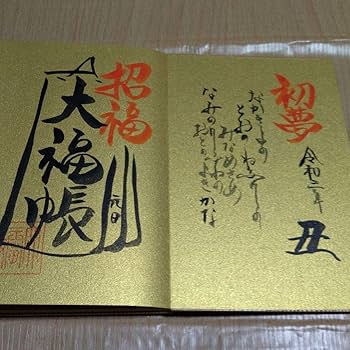 初夢
令和三年
丑
なかきよの
とおのねふりの
みなめさめ
なみのりふねの
おとのよきかな
招福
元日
大福帳